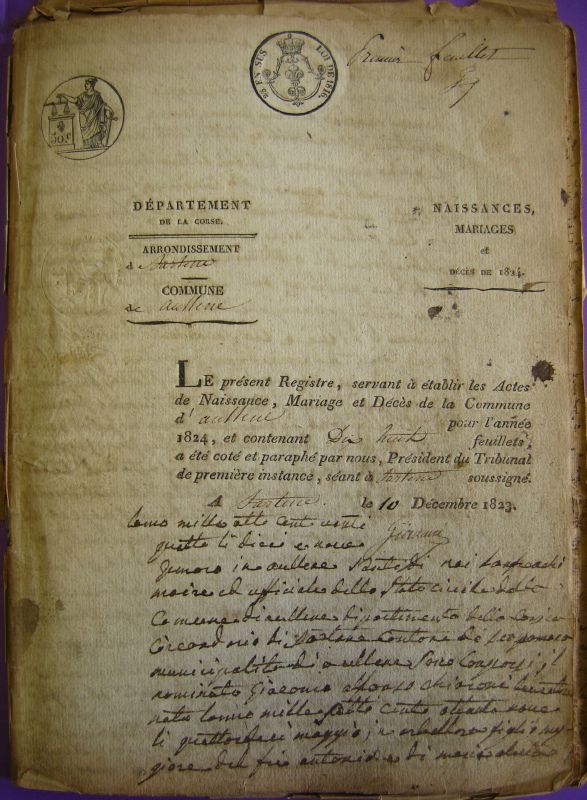 Premier feuillet
25 EN SUS LOI DE 1816.
50 c
DÉPARTEMENT
DE LA CORSE.
ARRONDISSEMENT
de Sartene
COMMUNE
de aullene
NAISSANCES,
MARIAGES
et
DÉCÈS DE 1824.
LE présent Registre, servant à établir les Actes
de Naissance, Mariage et Décès de la Commune
d'aullene pour l'année
1824, et contenant Dix huit feuillets,
a été coté et paraphé par nous, Président du Tribunal
de première instance, séant à Sartene soussigné.
A Sartene le 10 Décembre 1823.
lanno mille otto cento venti
quattro li dieci e nove
Genaro in aullene
maire ed ufficiale dello Stato civile della
Comune di aullene dipartimento della Corsica
Circondario di Sartene Cantone di
municipalità di aullene Sono Comparsi; il
nominato Giacomo
nato lanno mille sette cento ottanta nove
li quattordici maggio, figlio mag
giore del fu antonio e di maria